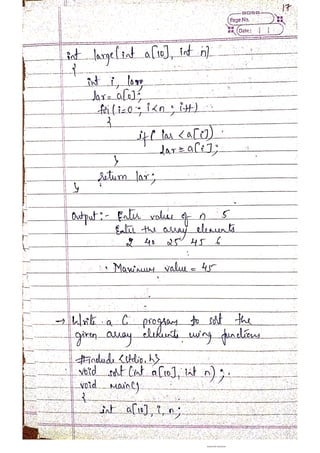 17
Page No.
Date: | |
int large(int a[10], int n)
{
int i, lar;
lar = a[0];
for(i=0; i<n; i++)
{
if( lar <a[i])
lar = a[i];
}
return lar;
}
Output:- Enter value of n 5
Enter the array elements
2 40 25 45 6
Maximum value = 45
→ Write a C program to sort the
given array elements using functions
#include <stdio.h>
void sort (int a[10], int n);
void main()
{
int a[10], i, n;